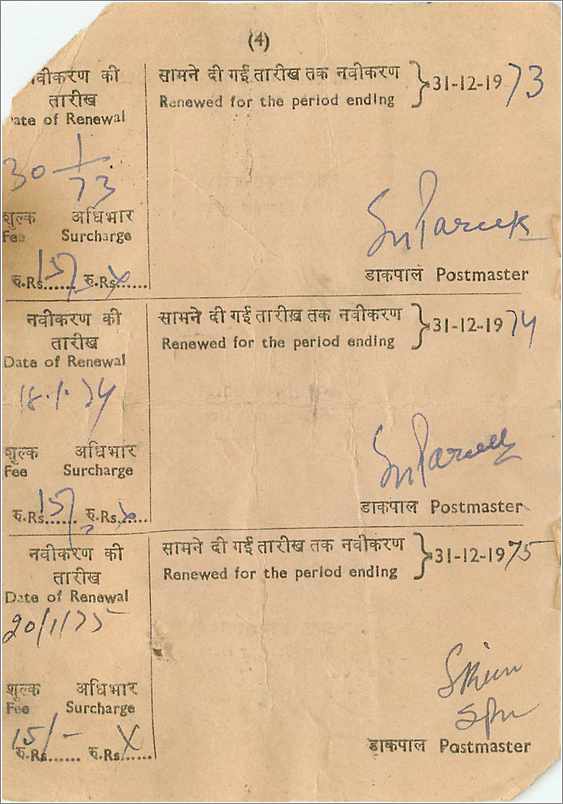 (4)
नवीकरण की
तारीख
Date of Renewal
30 1/73
शुल्क अधिभार
Fee Surcharge
रु.Rs. 15/ रु.Rs. x
सामने दी गई तारीख तक नवीकरण
Renewed for the period ending } 31-12-1973
डाकपाल Postmaster
नवीकरण की
तारीख
Date of Renewal
18.1.74
शुल्क अधिभार
Fee Surcharge
रु.Rs. 15/ रु.Rs. x
सामने दी गई तारीख़ तक नवीकरण
Renewed for the period ending } 31-12-1974
डाकपाल Postmaster
नवीकरण की
तारीख
Date of Renewal
20/1/75
शुल्क अधिभार
Fee Surcharge
15/- X
रु.Rs...... रु.Rs......
सामने दी गई तारीख तक नवीकरण
Renewed for the period ending } 31-12-1975
डाकपाल Postmaster